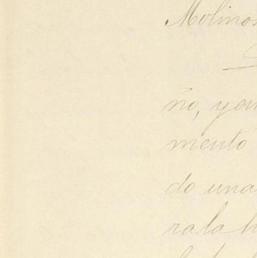 Molinos
no, y
mento
do una
rala h